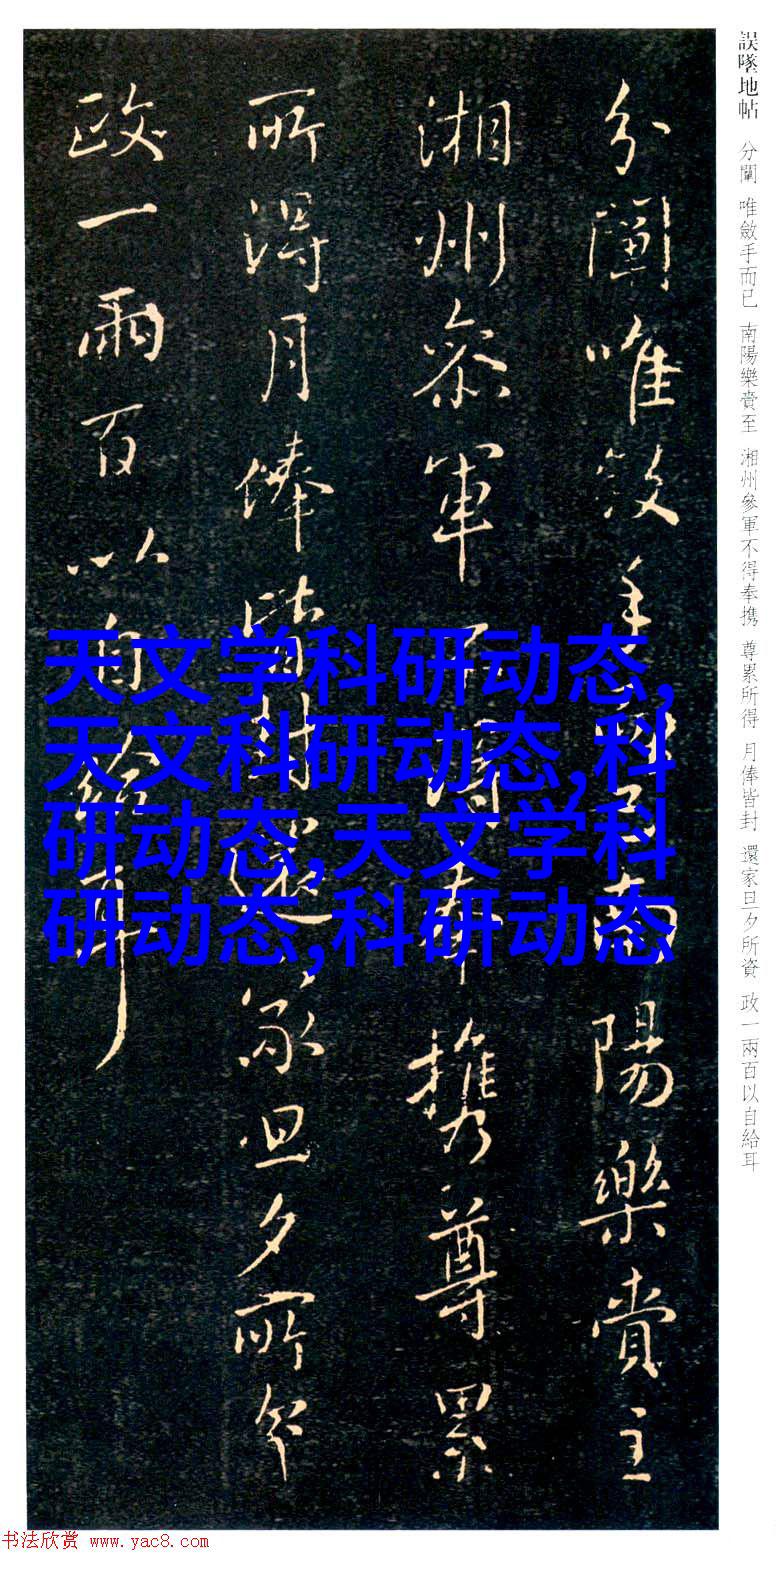 誤墜地帖 分闈 唯斂手而已 南陽樂賁至 湘州參軍不得奉携 尊累所得 月俸皆封 還家旦夕所資 政一兩百以自給耳
分闈唯斂手而已南陽樂賁至
湘州參軍不得奉携尊累
所得月俸皆封還家旦夕所資
政一兩百以自給耳
天文学科研动态,
天文科研动态,科
研动态,天文学科
研动态,科研动态
书法欣赏 www.yac8.com